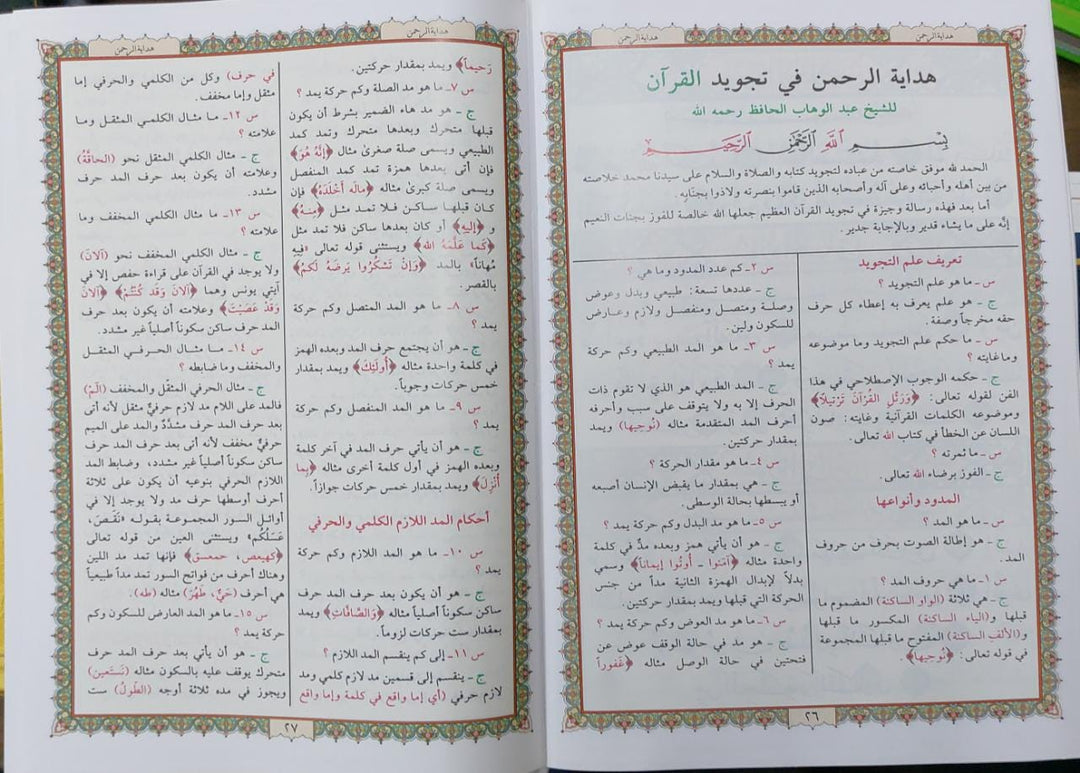 هداية الرحمن
هداية الرحمن
هداية الرحمن في تجويد القرآن
للشيخ عبد الوهاب الحافظ رحمه الله
بِسْمِ اللَّهِ الرَّحْمَٰنِ الرَّحِيمِ
الحمد لله موفق خاصته من عباده لتجويد كتابه والصلاة والسلام على سيدنا محمد خلاصته
من بين أهله وأحبائه وعلى آله وأصحابه الذين قاموا بنصرته ولاذوا بجنَابِه.
أما بعد فهذه رسالة وجيزة في تجويد القرآن العظيم جعلها الله خالصة للفوز بجنات النعيم
إنَّه على ما يشاء قدير وبالإجابة جدير.
تعريف علم التجويد
س ـ ما هو علم التجويد ؟
ج ـ هو علم يعرف به إعطاء كل حرف
حقه مخرجاً وصفة.
س ـ ما حكم علم التجويد وما موضوعه
وما غايته ؟
ج ـ حكمه الوجوب الإصطلاحي في هذا
الفن لقوله تعالى: ﴿وَرَتِّلِ القُرْآنَ تَرْتِيلاً﴾
وموضوعه الكلمات القرآنية وغايته: صون
اللسان عن الخطأ في كتاب الله تعالى.
س ـ ما ثمرته ؟
ج ـ الفوز برضاء الله تعالى.
المدود وأنواعها
س ـ ما هو المد ؟
ج ـ هو إطالة الصوت بحرف من حروف
المد.
س ١ـ ما هي حروف المد ؟
ج ـ هي ثلاثة (الواو الساكنة) المضموم ما
قبلها و(الياء الساكنة) المكسور ما قبلها
و(الألف الساكنة) المفتوح ما قبلها المجموعة
في قوله تعالى: ﴿نُوحِيهَا﴾.
س ٢ـ كم عدد المدود وما هي ؟
ج ـ عددها تسعة: طبيعي وبدل وعوض
وصلة ومتصل ومنفصل ولازم وعارض
للسكون ولين.
س ٣ـ ما هو المد الطبيعي وكم حركة
يمد ؟
ج ـ المد الطبيعي هو الذي لا تقوم ذات
الحرف إلا به ولا يتوقف على سبب وأحرفه
أحرف المد المتقدمة مثاله (نُوحِيها) ويمد
بمقدار حركتين.
س ٤ـ ما هو مقدار الحركة ؟
ج ـ هي بمقدار ما يقبض الإنسان أصبعه
أو يبسطها بحالة الوسطى.
س ٥ـ ما هو مد البدل وكم حركة يمد ؟
ج ـ هو أن يأتي همز وبعده مدٌّ في كلمة
واحدة مثاله ﴿آمَنُوا ـ أُوتُوا إيماناً﴾ وسمي
بدلاً لإبدال الهمزة الثانية مداً من جنس
الحركة التي قبلها ويمد بمقدار حركتين.
س ٦ـ ما هو مد العوض وكم حركة يمد ؟
ج ـ هو مد في حالة الوقف عوض عن
فتحتين في حالة الوصل مثاله ﴿غَفُوراً
٢٦
هداية الرحمن
هداية الرحمن
رَحيماً﴾ ويمد بمقدار حركتين.
س ٧ـ ما هو مد الصلة وكم حركة يمد ؟
ج ـ هو مد هاء الضمير بشرط أن يكون
قبلها متحرك وبعدها متحرك وتمد كمد
الطبيعي ويسمى صلة صغرىٰ مثال ﴿إِنَّهُ هُوَ﴾
فإن أتى بعدها همزة تمد كمد المنفصل
ويسمى صلة كبرىٰ مثاله ﴿مالَه أَخْلَدَهُ﴾ فإن
كان قبلها ساكن فلا تمد مثل ﴿مِنهُ﴾
و ﴿إليهِ﴾ أو كان بعدها ساكن فلا تمد مثل
﴿كَما عَلَّمَهُ الله﴾ ويستثنى قوله تعالى «فِيهِ
مُهَاناً» بالمد ﴿وَإِنْ تَشْكُرُوا يَرضَهُ لَكمْ﴾
بالقصر.
س ٨ـ ما هو المد المتصل وكم حركة
يمد ؟
ج ـ هو أن يجتمع حرف المد وبعده الهمز
في كلمة واحدة مثاله ﴿أُولَئِكَ﴾ ويمد بمقدار
خمس حركات وجوباً.
س ٩ـ ما هو المد المنفصل وكم حركة
يمد ؟
ج ـ هو أن يأتي حرف المد في آخر كلمة
وبعده الهمز في أول كلمة أخرى مثاله ﴿بِما
أُنْزِلَ﴾ ويمد بمقدار خمس حركات جوازاً.
أحكام المد اللازم الكلمي والحرفي
س ١٠ـ ما هو المد اللازم وكم حركة
يمد ؟
ج ـ هو أن يكون بعد حرف المد حرف
ساكن سكوناً أصلياً مثاله ﴿وَالصَّافَّاتِ﴾ ويمد
بمقدار ست حركات لزوماً.
س ١١ـ إلى كم ينقسم المد اللازم ؟
ج ـ ينقسم إلى قسمين مد لازم كلمي ومد
لازم حرفي (أي إما واقع في كلمة وإما واقع
في حرف) وكل من الكلمي والحرفي إما
مثقل وإما مخفف.
س ١٢ـ ما مثال الكلمي المثقل وما
علامته ؟
ج ـ مثال الكلمي المثقل نحو (الحاقَّةُ)
وعلامته أن يكون بعد حرف المد حرف
مشدد.
س ١٣ـ ما مثال الكلمي المخفف وما
علامته ؟
ج ـ مثال الكلمي المخفف نحو (آلآنَ)
ولا يوجد في القرآن على قراءة حفص إلا في
آيتي يونس وهما ﴿آلآنَ وَقَد كُنتُمْ﴾ ﴿آلآنَ
وَقَدْ عَصَيْتَ﴾ وعلامته أن يكون بعد حرف
المد حرف ساكن سكوناً أصلياً غير مشدد.
س ١٤ـ ما مثال الحرفي المثقل
والمخفف وما ضابطه ؟
ج ـ مثال الحرفي المثقل والمخفف (الم)
فالمد على اللام مد لازم حرفيٌّ مثقل لأنه أتى
بعد حرف المد حرف مشدَّدٌ والمد على الميم
حرفيٌّ مخفف لأنه أتى بعد حرف المد حرف
ساكن سكوناً أصلياً غير مشدد، وضابط المد
اللازم الحرفي بنوعيه أن يكون على ثلاثة
أحرف أوسطها حرف مد ولا يوجد إلا في
أوائل السور المجموعة بقوله «نَقَصَ،
عَسَلُكُم» ويستثنى العين من قوله تعالى
﴿كهيعص، حمعسق﴾ فإنها تمد مد اللين
وهناك أحرف من فواتح السور تمد مداً طبيعياً
هي أحرف (حَيٌّ، طَهُرَ) مثاله (طه).
س ١٥ـ ما هو المد العارض للسكون وكم
حركة يمد ؟
ج ـ هو أن يأتي بعد حرف المد حرف
متحرك يوقف عليه بالسكون مثاله (نَستَعين)
ويجوز في مده ثلاثة أوجه (الطُولُ) ست
٢٧